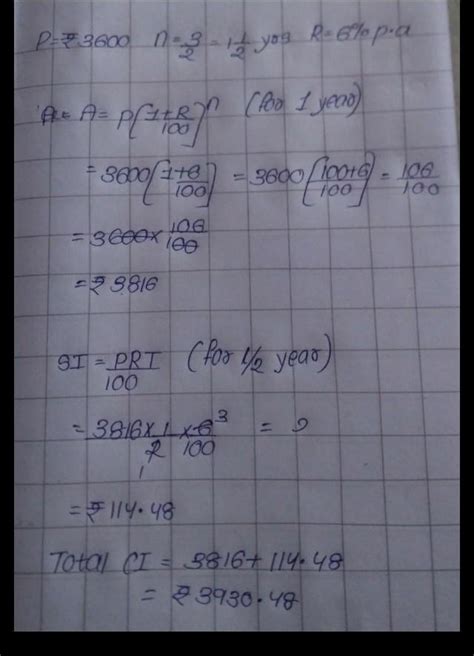 P=₹3600 n=3/2=1 1/2 yrs R=6% p.a
A= A= P[1+R/100]^n (for 1 year)
=3600[1+6/100] = 3600[100+6/100] = 106/100
=3600×106/100
=₹3816
SI = PRT/100 (for 1/2 year)
= 3816×1/2 ×6/100 3 1 =
=₹114.48
Total CI = 3816+114.48
= ₹3930.48